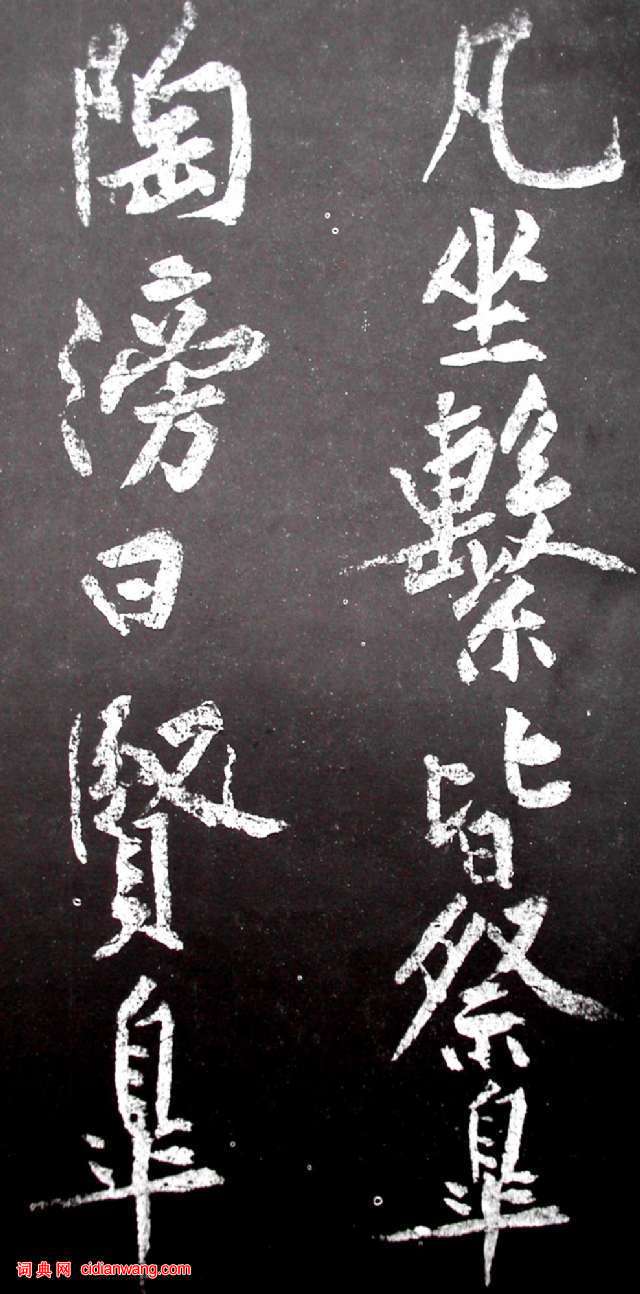 凡坐繫皆祭皐
陶滂曰賢皐
词典网 cidianwang.com